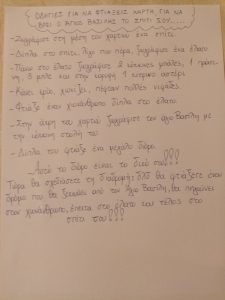 ΟΔΗΓΙΕΣ ΓΙΑ ΝΑ ΦΤΙΑΞΕΙΣ ΧΑΡΤΗ, ΓΙΑ ΝΑ
ΒΡΕΙ Ο ΑΓΙΟΣ ΒΑΣΙΛΗΣ ΤΟ ΣΠΙΤΙ ΣΟΥ.....
-Ζωγράφισε στη μέση του χαρτιού ένα σπίτι.
-Δίπλα στο σπίτι, λίγο πιο πέρα, ζωγράφισε ένα έλατο
-Πάνω στο έλατο ζωγράφισε 2 κόκκινες μπάλες, 1 πράσι-
νη, 3 μπλε και στην κορυφή 1 κίτρινο αστέρι
-Κάνει κρύο, χιονίζει, πέφτουν πολλές νιφάδες
-Φτιάξε έναν χιονάνθρωπο δίπλα στο έλατο.
-Στην άκρη του χαρτιού ζωγράφισε τον άγιο Βασίλη με
την κόκκινη στολή του
-Δίπλα του φτιάξε ένα μεγάλο δώρο.
-Αυτό το δώρο είναι το δικό σου!!!
Τώρα θα σχεδιάσετε τη διαδρομή: θα φτιάξετε έναν
δρόμο που θα ξεκινάει από τον Άγιο Βασίλη, θα πηγαίνει
στον χιονάνθρωπο, έπειτα στο έλατο και τέλος στο
σπίτι σου!!!